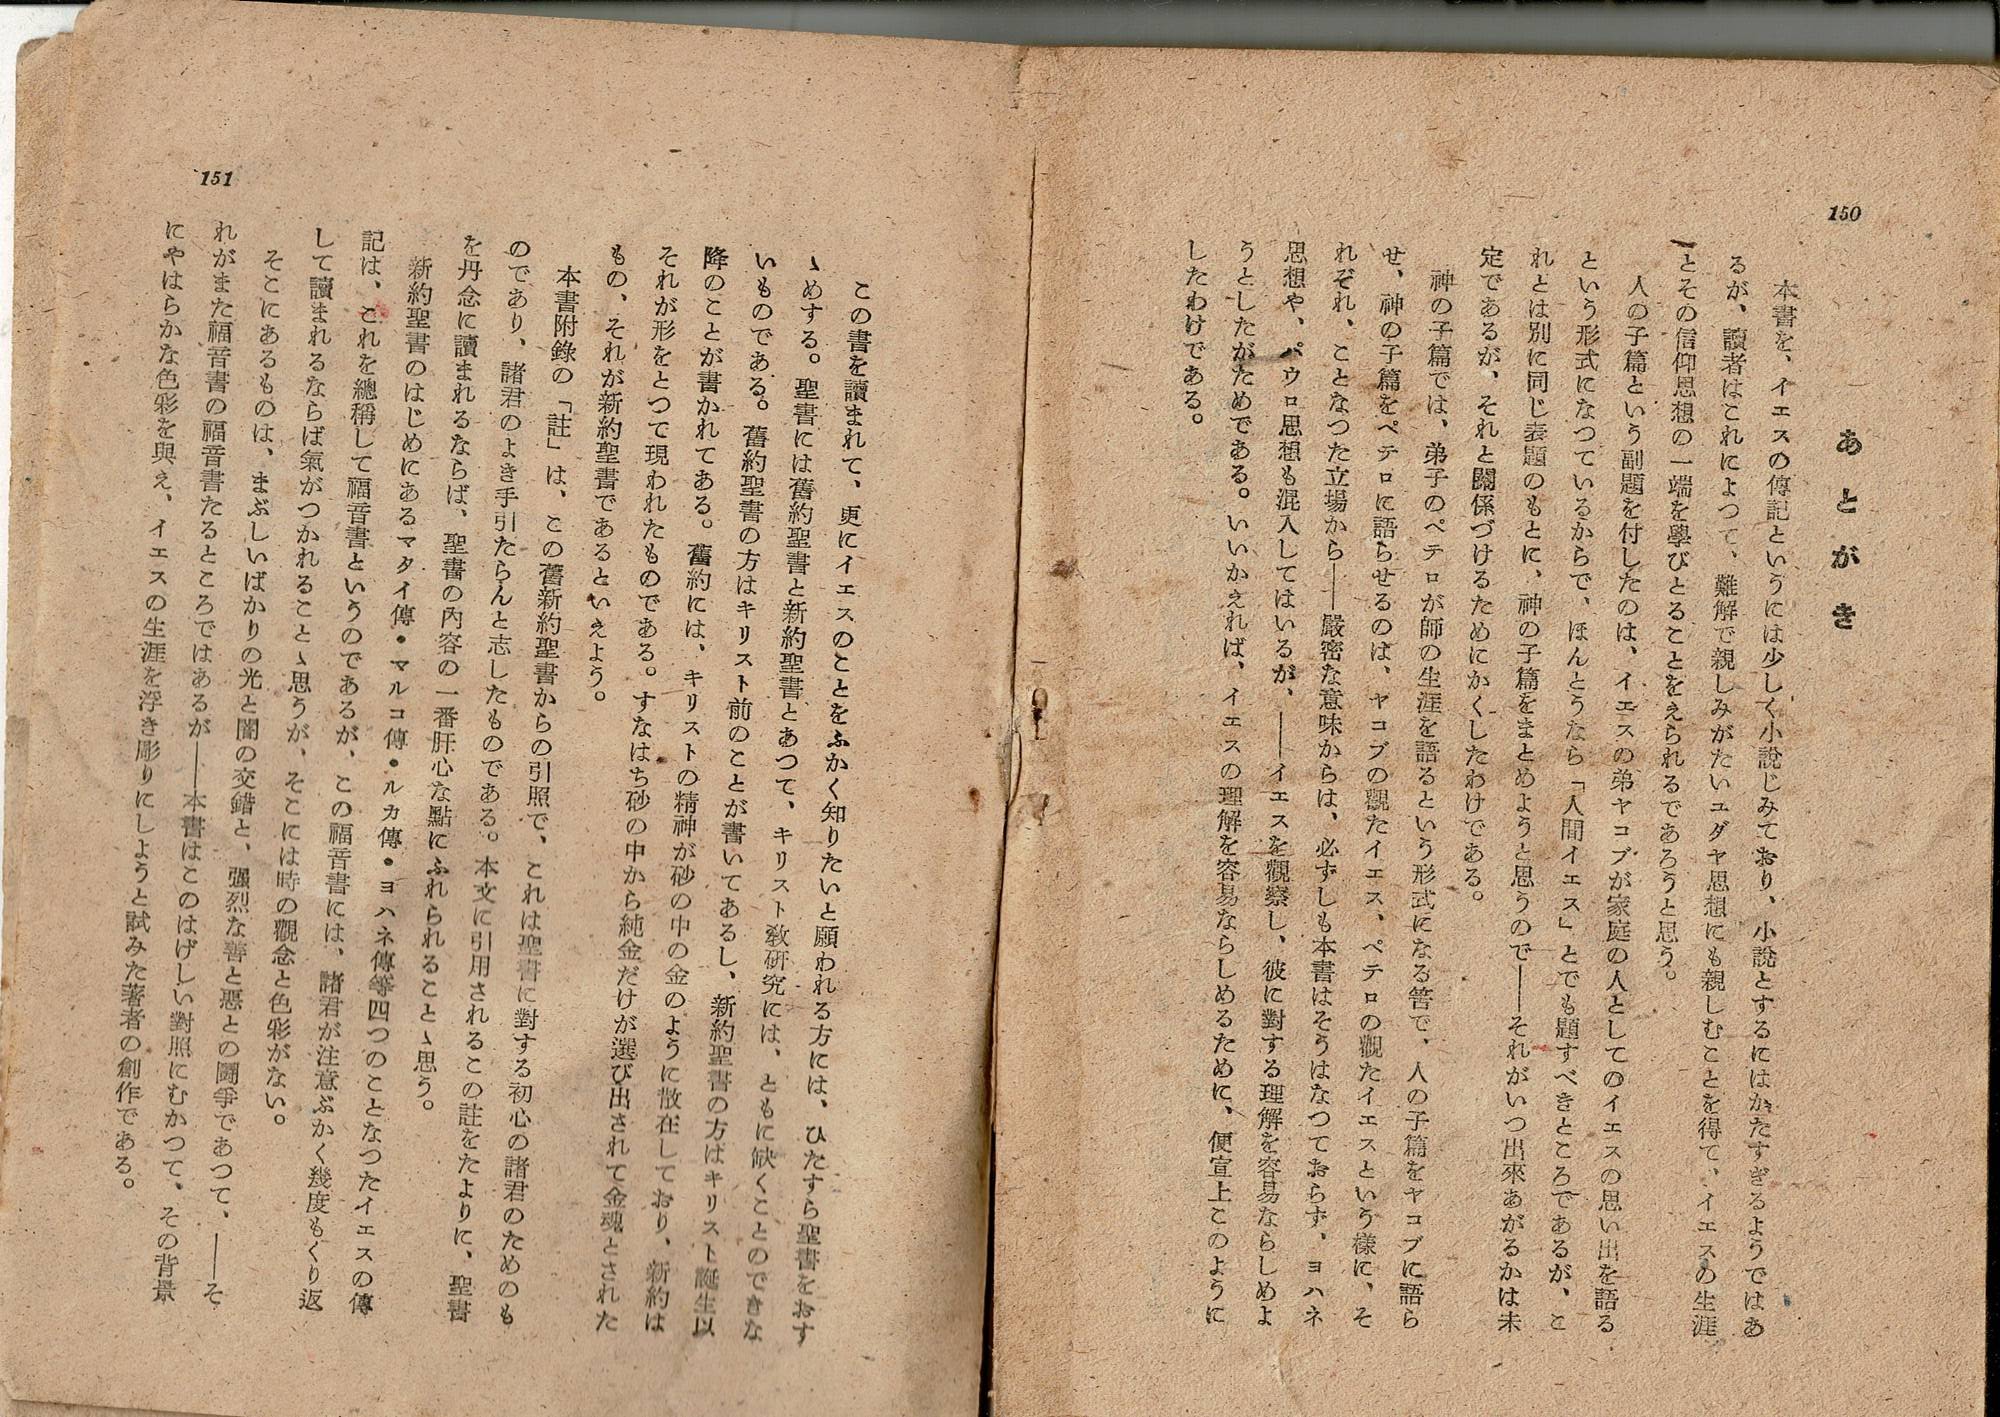 150
あとがき
本書を、イエスの傳記というには少しく小說じみており、小說とするにはかたすぎるようではあ
るが、讀者はこれによつて、難解で親しみがたいユダヤ思想にも親しむことを得て、イエスの生涯
とその信仰思想の一端を學びとることをえられるであろうと思う。
人の子篇という副題を付したのは、イエスの弟ヤコブが家庭の人としてのイエスの思い出を語る
という形式になつているからで、ほんとうなら「人間イエス」とでも題すべきところであるが、こ
れとは別に同じ表題のもとに、神の子篇をまとめようと思うので――それがいつ出來あがるかは未
定であるが、それと關係づけるためにかくしたわけである。
神の子篇では、弟子のペテロが師の生涯を語るという形式になる筈で、人の子篇をヤコブに語ら
せ、神の子篇をペテロに語らせるのは、ヤコブの觀たイエス、ペテロの觀たイエスという樣に、そ
れぞれ、ことなつた立場から――嚴密な意味からは、必ずしも本書はそうはなつておらず、ヨハネ
思想や、パウロ思想も混入してはいるが、――イエスを觀察し、彼に對する理解を容易ならしめよ
うとしたがためである。いいかえれば、イエスの理解を容易ならしめるために、便宜上このように
したわけである。
151
この書を讀まれて、更にイエスのことをふかく知りたいと願われる方には、ひたすら聖書をおす
ゝめする。聖書には舊約聖書と新約聖書とあつて、キリスト敎研究には、ともに缺くことのできな
いものである。舊約聖書の方はキリスト前のことが書いてあるし、新約聖書の方はキリスト誕生以
降のことが書かれてある。舊約には、キリストの精神が砂の中の金のように散在しており、新約は
それが形をとつて現われたものである。すなはち砂の中から純金だけが選び出されて金魂とされた
もの、それが新約聖書であるといえよう。
本書附錄の「註」は、この舊新約聖書からの引照で、これは聖書に對する初心の諸君のためのも
のであり、諸君のよき手引たらんと志したものである。本文に引用されるこの註をたよりに、聖書
を丹念に讀まれるならば、聖書の內容の一番肝心な點にふれられることゝ思う。
新約聖書のはじめにあるマタイ傳・マルコ傳・ルカ傳・ヨハネ傳等四つのことなつたイエスの傳
記は、これを總稱して福音書というのであるが、この福音書には、諸君が注意ぶかく幾度もくり返
して讀まれるならば氣がつかれることゝ思うが、そこには時の觀念と色彩がない。
そこにあるものは、まぶしいばかりの光と闇の交錯と、强烈な善と惡との鬪爭であつて、――そ
れがまた福音書の福音書たるところではあるが――本書はこのはげしい對照にむかつて、その背景
にやはらかな色彩を與え、イエスの生涯を浮き彫りにしようと試みた著者の創作である。